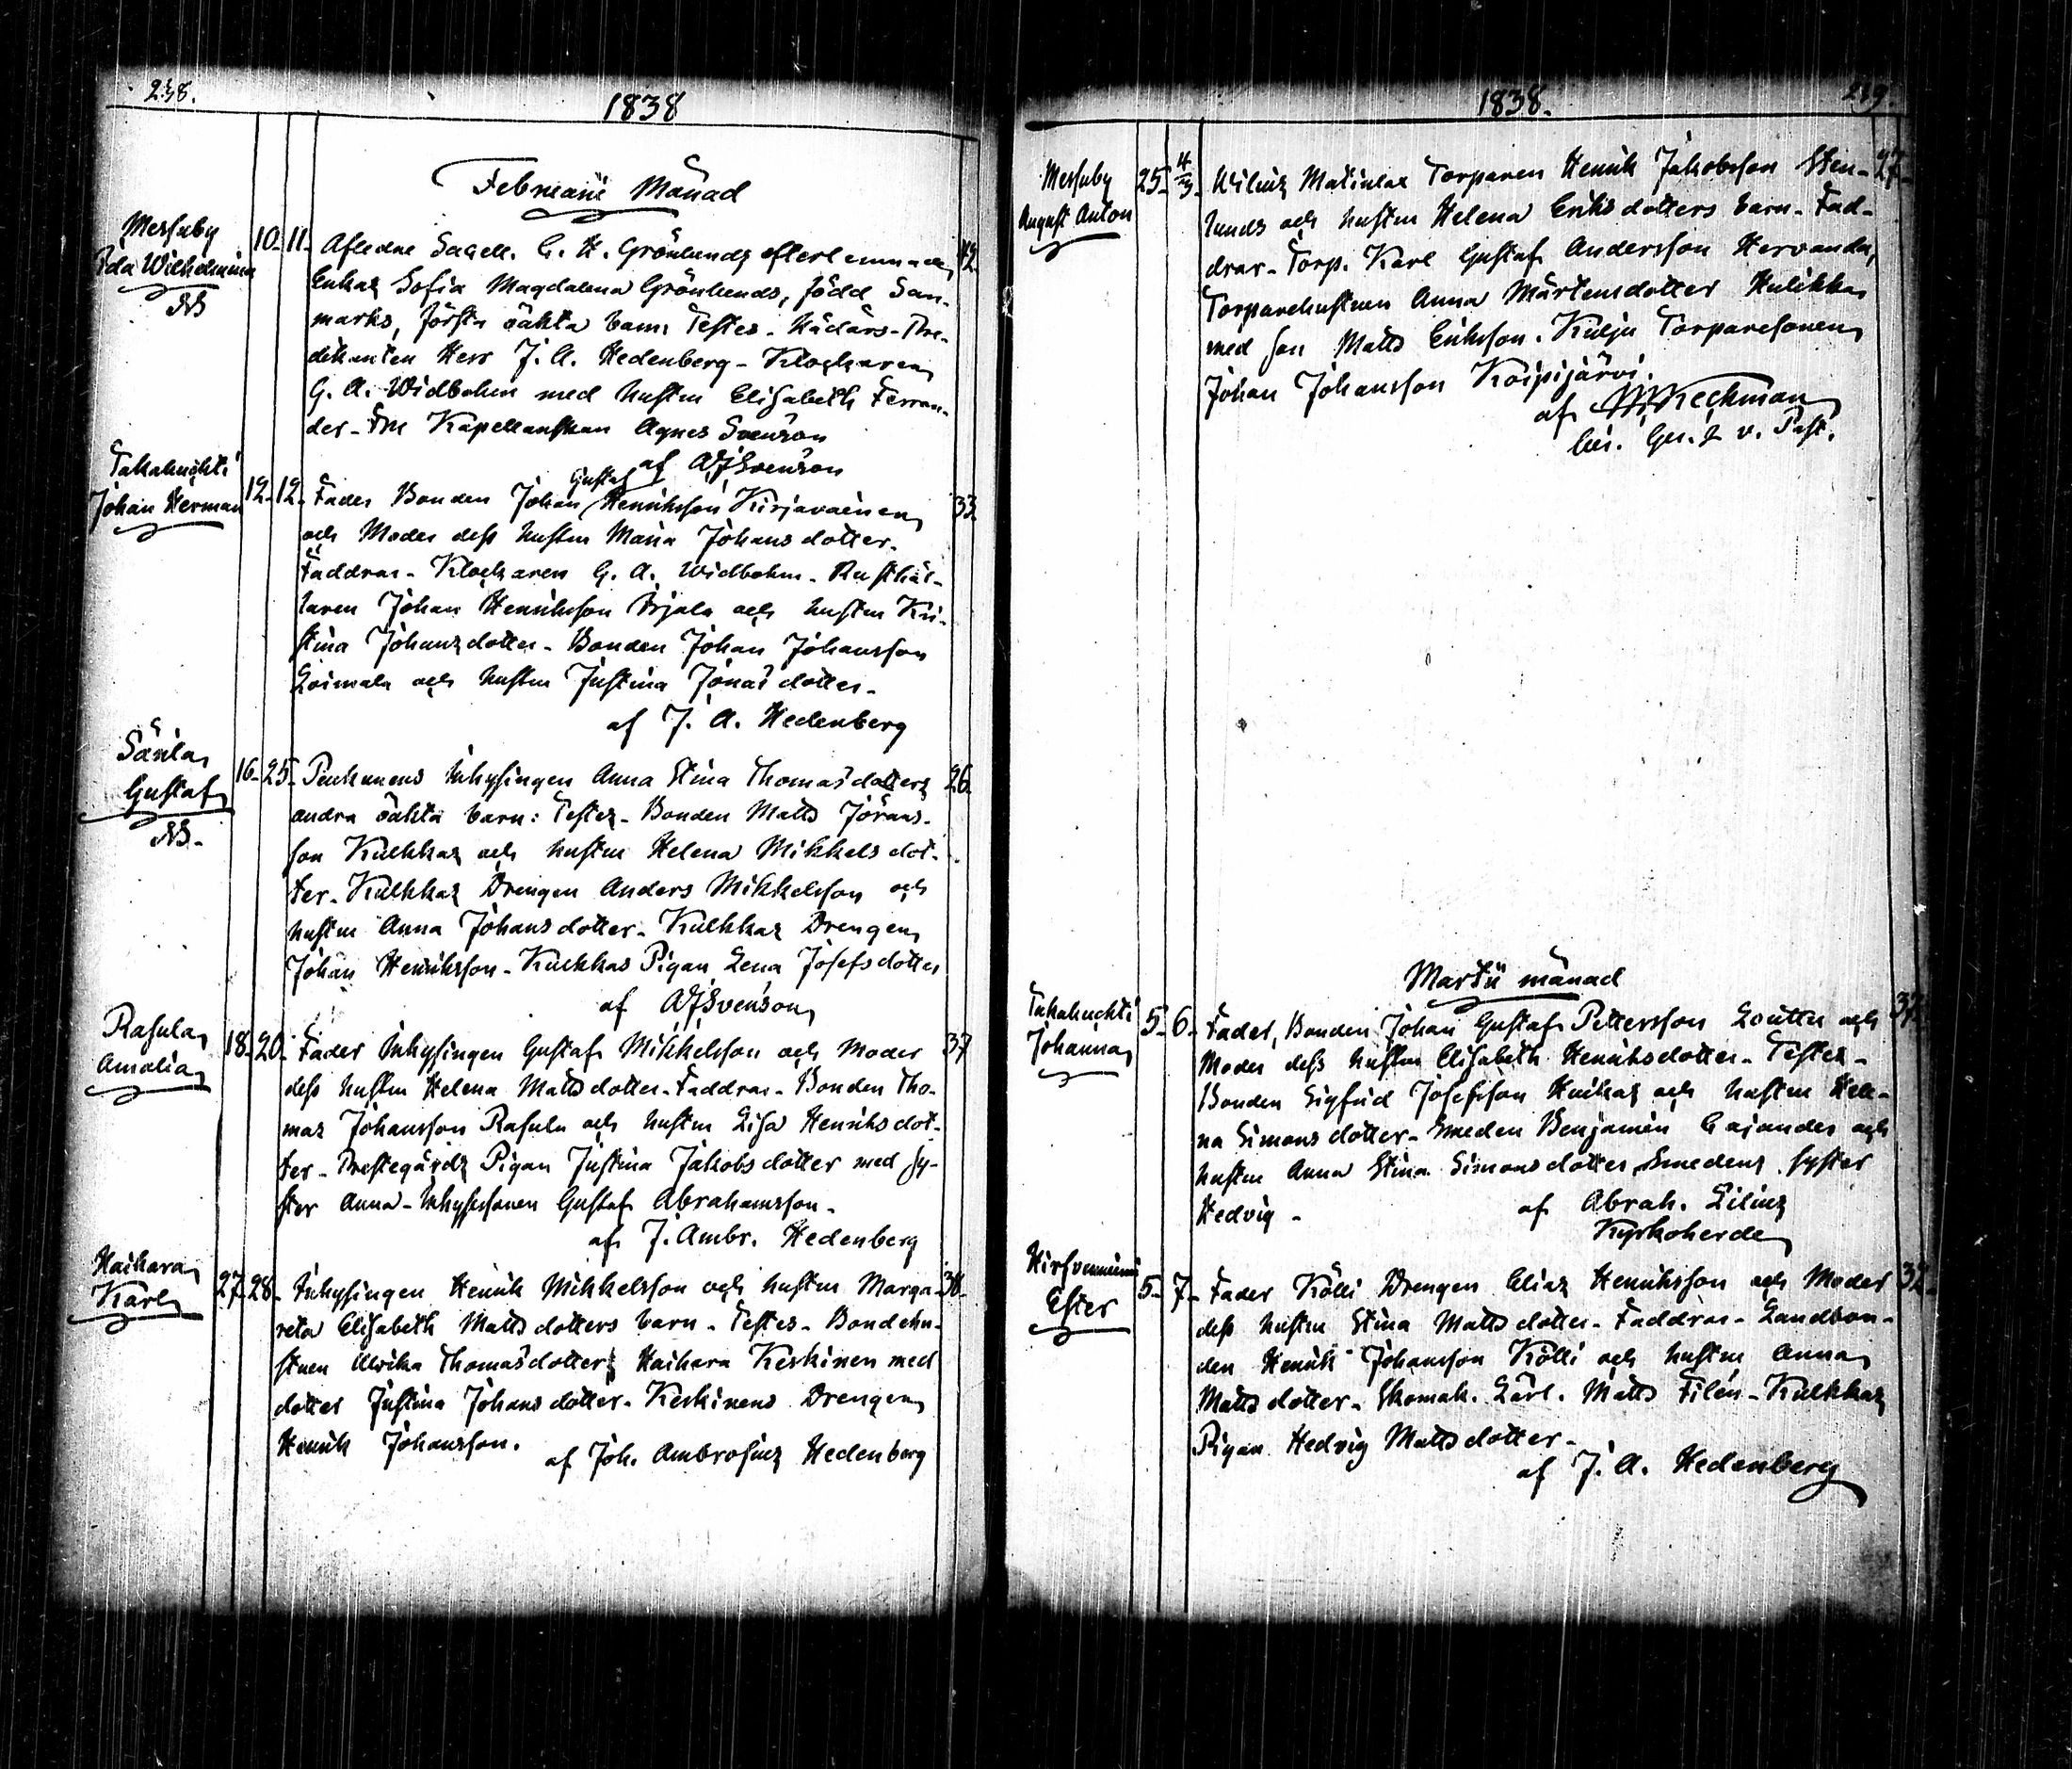 238.
1838
Februarii Månad
Messuby
Ida Wilhelmina
NB
10. 11. Afledne Sagell. C. H. Grönlunds efterlemnade 42.
Enkas Sofia Magdalena Grönlunds, född San-
marks, första oäkta barn: Testes. Hädars-Pre-
dikanten Herr J. A. Hedenberg - Klockaren
G. A. Widbohm med hustru Elisabeth Ferran-
der - Fru Kapellanskan Agnes Svenson
af AJSvenson
Takahuchti
Johan Herman
12. 12. Fader Bonden Johan Gustaf Henriksson Kirjavainen 33.
och Moder dess hustru Maria Johansdotter.
Faddrar - Klockaren G. A. Widbohm - Rusthål-
laren Johan Henriksson Irjala och hustru Kri-
stina Johansdotter - Bonden Johan Johansson
Loimala och hustru Justina Jonasdotter -
af J. A. Hedenberg
Särila
Gustaf
NB.
16. 25. Penhunens Inhysingen Anna Stina Thomasdotters 26.
andra oäkta barn: Testes - Bonden Matts Jörans-
son Kulkkas och hustru Helena Mikkelsdot-
ter - Kulkkas Drengen Anders Mikkelsson och
hustru Anna Johansdotter - Kulkkas Drengen
Johan Henriksson - Kulkkas Pigan Lena Josefsdotter
af AJSvenson
Rasula
Amalia
18. 20. Fader Inhysingen Gustaf Mikkelsson och Moder 37
dess hustru Helena Mattsdotter - Faddrar - Bonden Tho-
mas Johansson Rasula och hustru Lisa Henriksdot-
ter - Prestegårds Pigan Justina Jakobsdotter med sy-
ster Anna - Inhysessonen Gustaf Abrahamsson -
af J. Ambr. Hedenberg
Haihara
Karl
27. 28. Inhysingen Henrik Mikkelsson och hustru Marga- 38.
reta Elisabeth Mattsdotters barn - Testes - Bondehu-
strun Ulrika Thomasdotter Haihara Keskinen med
dotter Justina Johansdotter - Keskinens Drengen
Henrik Johansson.
af Joh. Ambrosius Hedenberg
1838.
239.
Messuby
August Anton
25. 4/3. Wilius Matinlax Torparen Henrik Jakobsson Sten- 27.
lunds och hustru Helena Eriksdotters barn - Fad-
drar - Torp. Karl Gustaf Andersson Hervanda,
Torparehustrun Anna Mårtensdotter Hulikka
med son Matts Eriksson - Kulju Torparesonen
Johan Johansson Koipijärvi.
af Keckman
v. Past.
Martii månad
Takahuchti
Johanna
5. 6. Fader, Bonden Johan Gustaf Pettersson Loutti och 37.
Moder dess hustru Elisabeth Henriksdotter - Testes -
Bonden Sigfrid Josefsson Huikas och hustru Hele-
na Simonsdotter - Smeden Benjamin Cajander och
hustru Anna Stina Simonsdotter, Smedens syster
Hedvig -
af Abrah. Lilius
Kyrkoherde
Hirvenniemi
Ester
5. 7. Fader Kölli Drengen Elias Henriksson och Moder 32.
dess hustru Stina Mattsdotter - Faddrar - Landbon-
den Henrik Johansson Kölli och hustru Anna
Mattsdotter - Skomak. Lärl. Matts Filén - Kulkkas
Pigan Hedvig Mattsdotter -
af J. A. Hedenberg